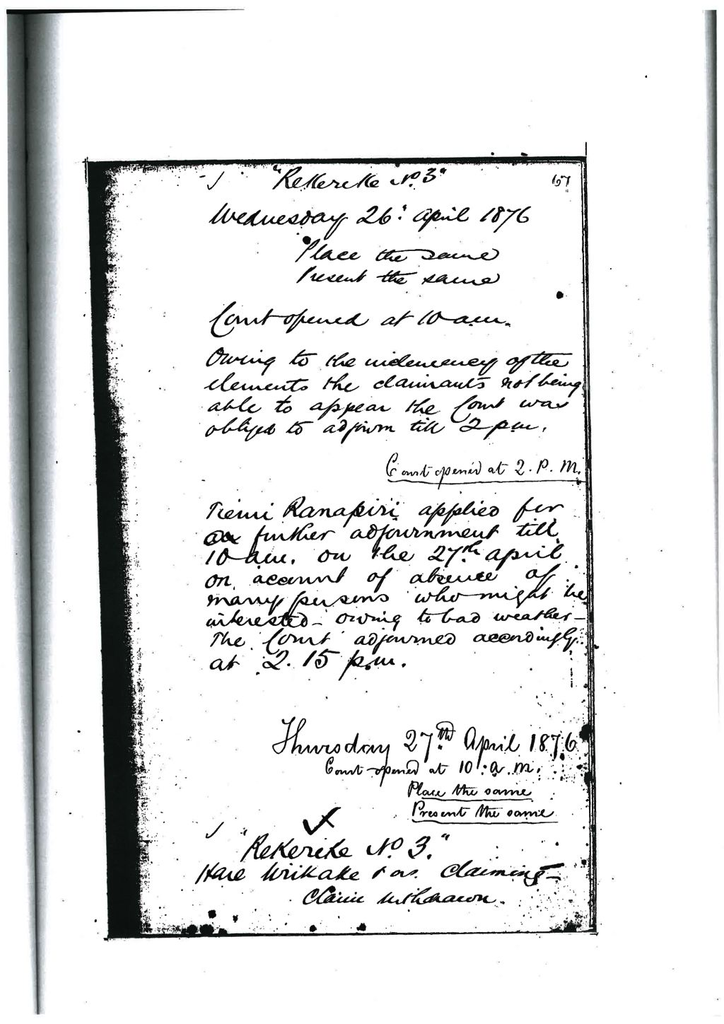 "Rekereke No. 3"
Wednesday 26: April 1876
Place the same
Present the same
Court opened at 10 a.m.
Owing to the inclemency of the
elements the claimants not being
able to appear the Court was
obliged to adjourn till 2 p.m.
Court opened at 2. P. M.
Tiemi Ranapiri applied for
further adjournment till
10 a.m. on the 27th April
on account of absence of
many persons who might be
interested - owing to bad weather -
The Court adjourned accordingly
at 2.15 p.m.
Thursday 27th April 1876
Court opened at 10: a.m.
Place the same
Present the same
"Rekereke No 3."
Hare claiming -
Claim withdrawn.